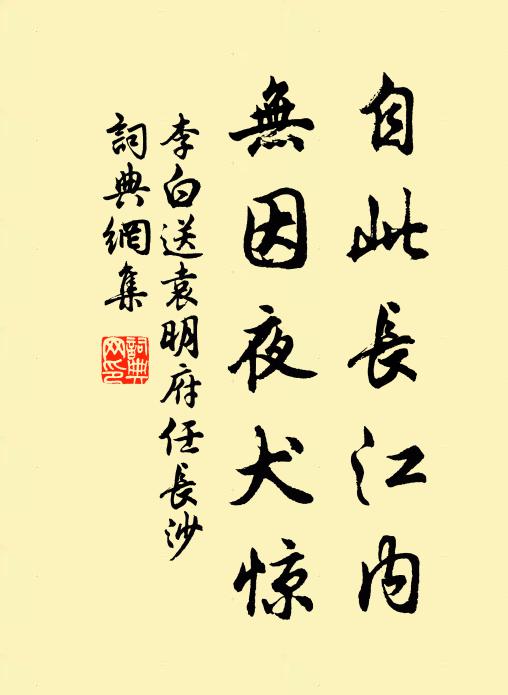 自此長江内
無因夜犬惊
李白送袁明府任長沙
詞典網集
詞典网印